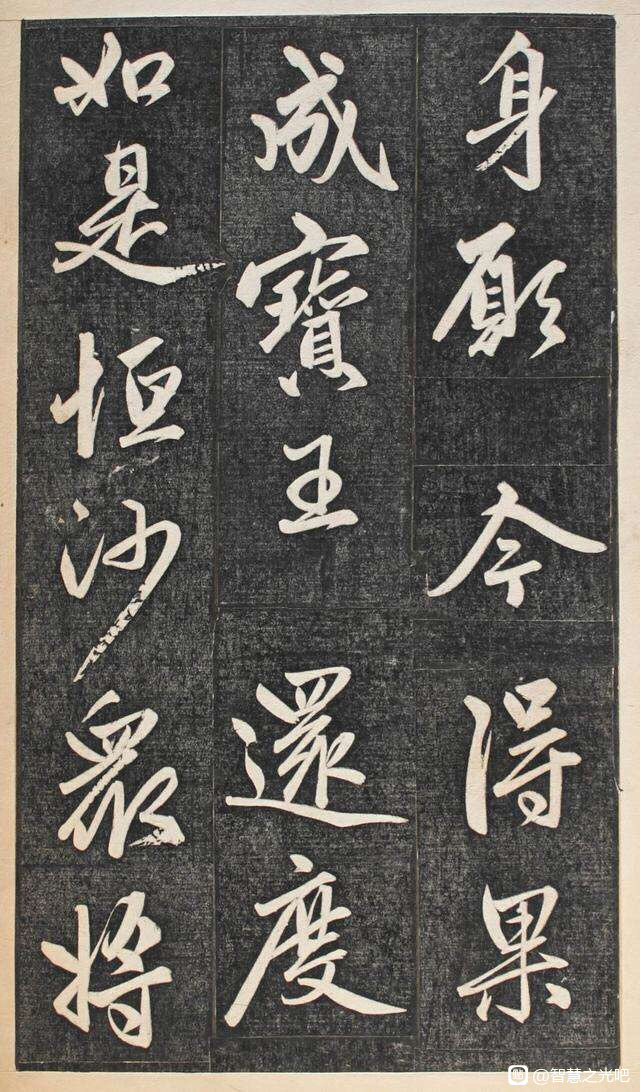 身願今得果
成寶王還度
如是恒沙眾將
@智慧之光吧